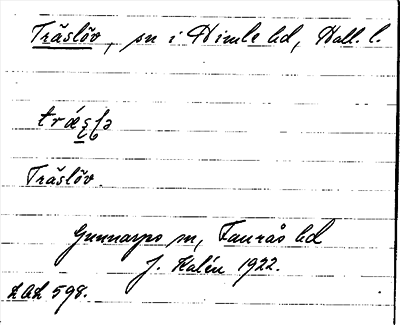 Träslöv, sn i Himle hd, Hall. l.
Träslöv.
Gunnarps sn, Faurås hd
J. Kalén 1922.
LAL 598.